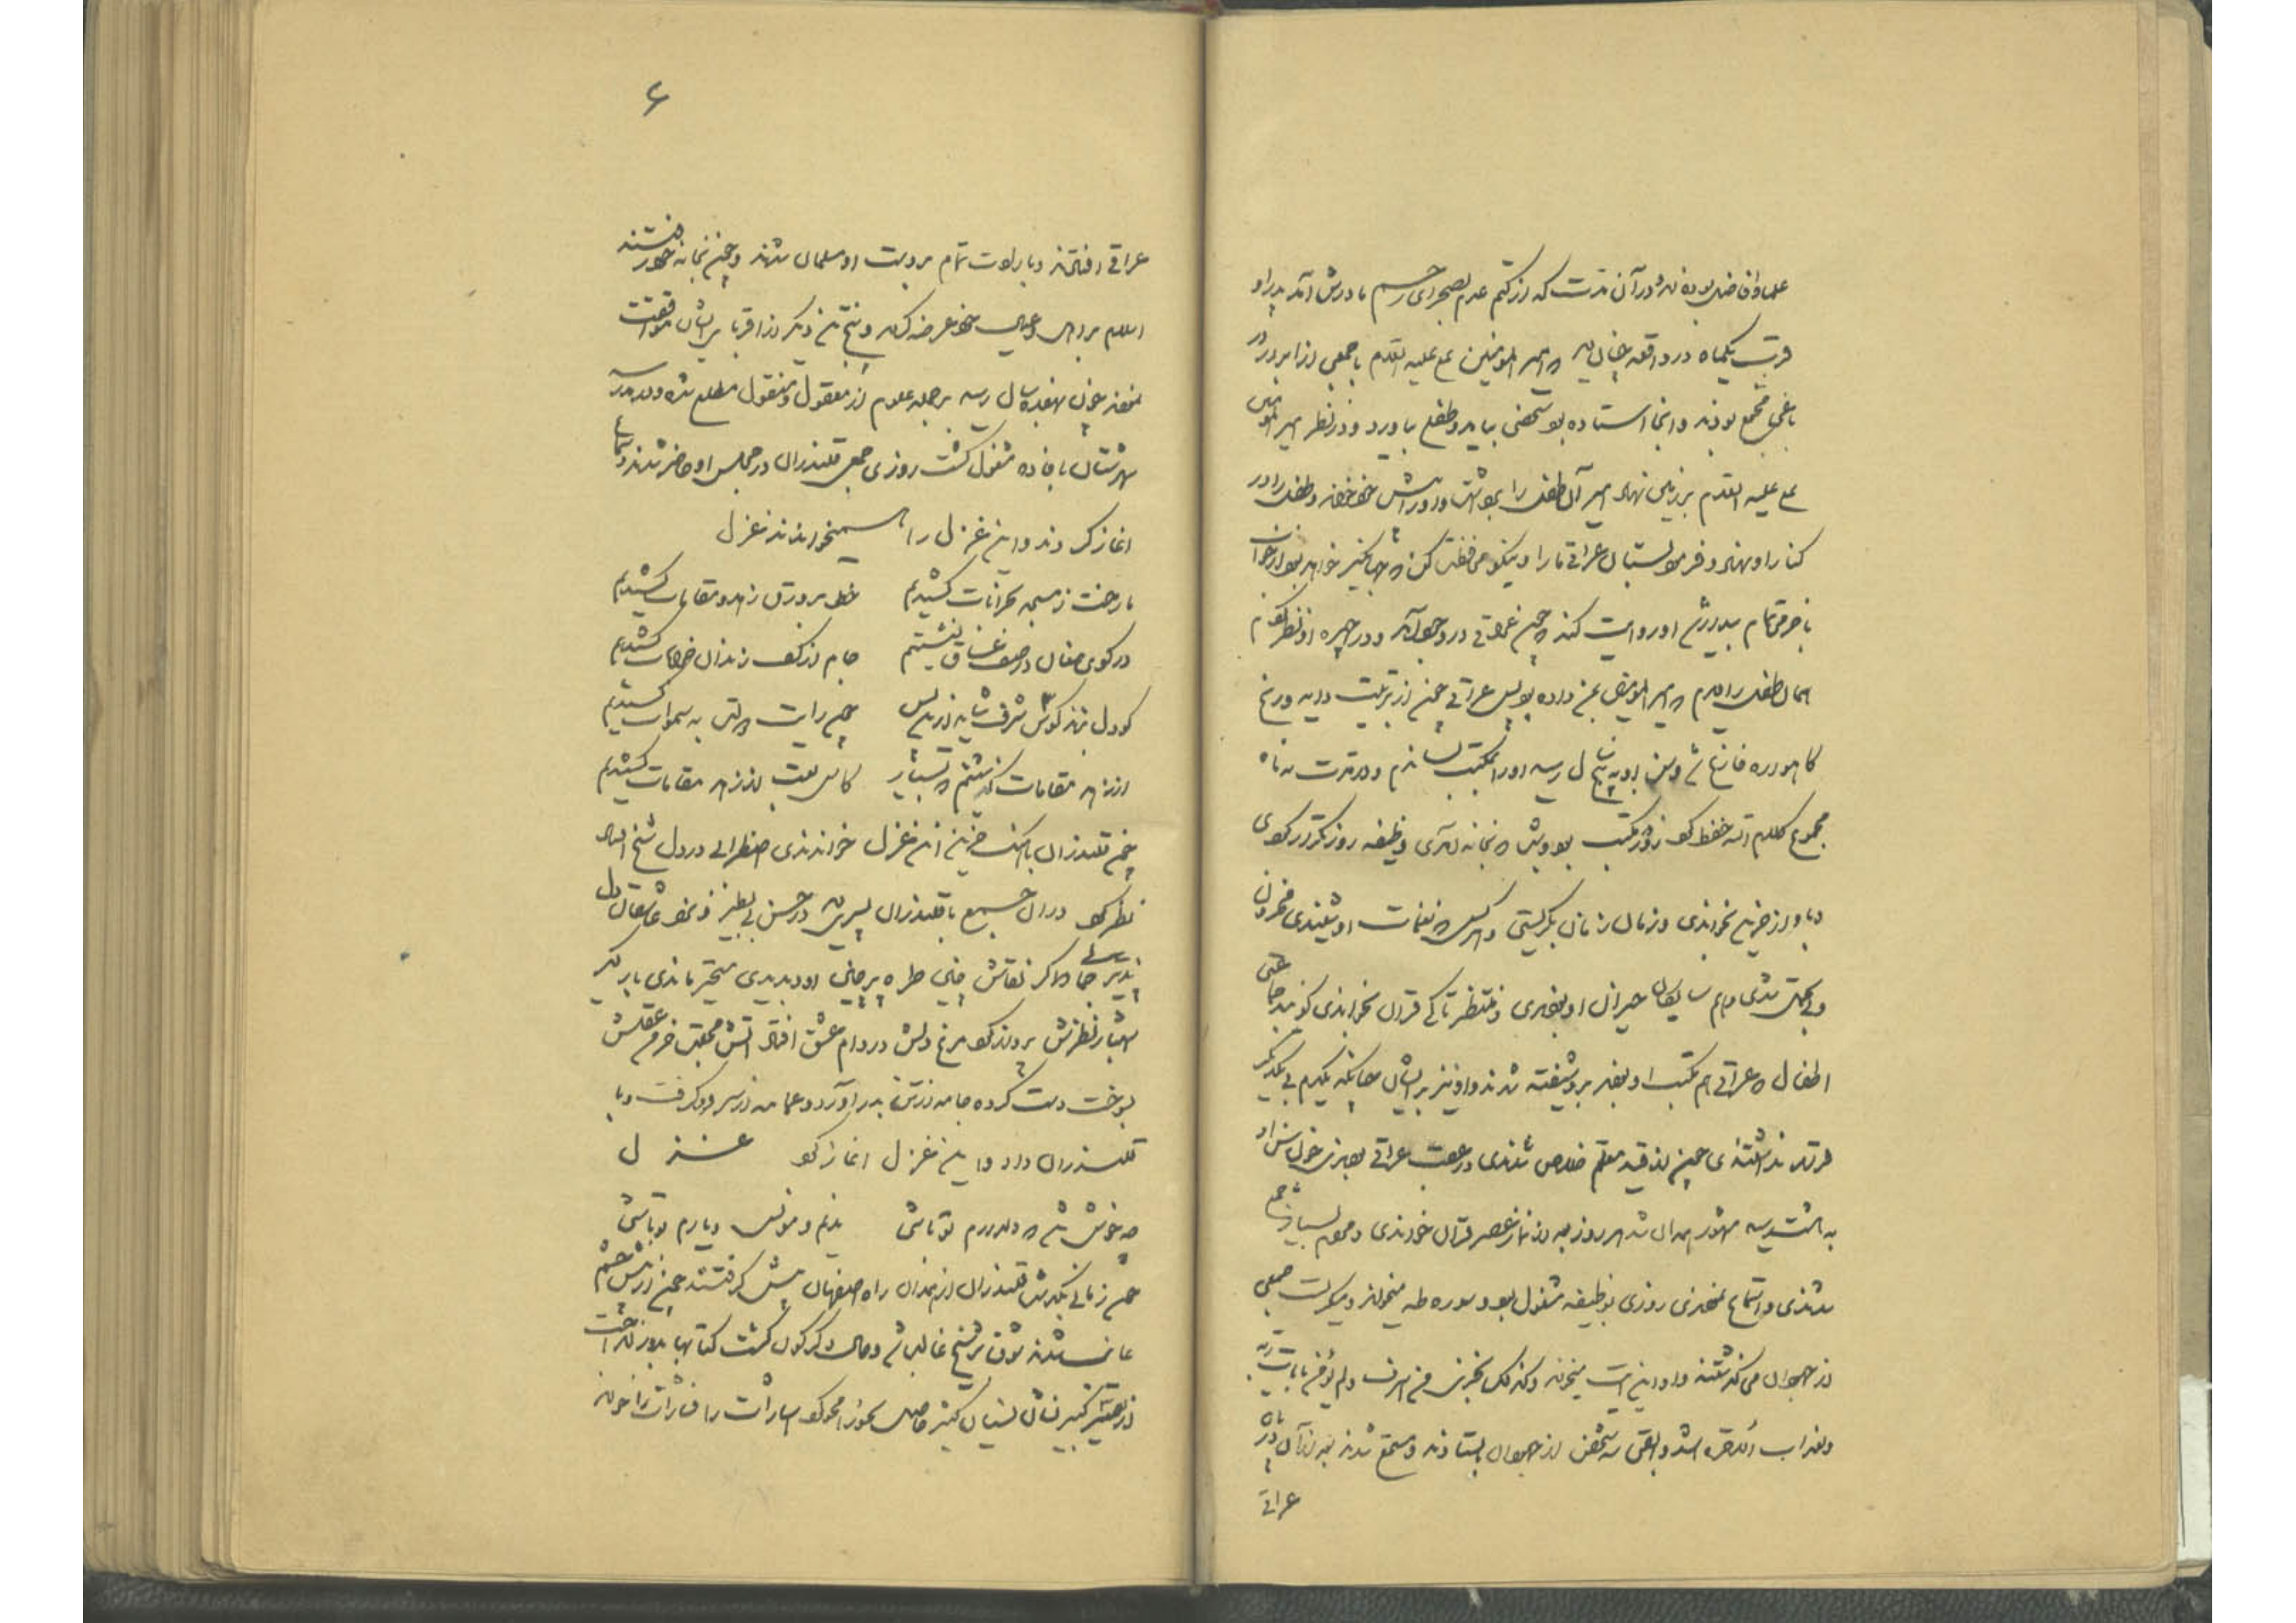 علما و افاضل بوده‌اند در آن مدت که از کتم عدم بصحرای رسم مادرش آمد پدر او
قرب یکماه در واقعه چنان دید که امیر المومنین علی علیه السلام با جمعی از ابرار در
باغی مجتمع بودند و آنجا استاده بود شخصی بیامد و طفلی بیاورد و در نظر امیر المومنین
علی علیه السلام بر زمین نهاد امیر آن طفل را برداشت و او را پیش خود خواند و طفل را در
کنار او نهاد و فرمود بستان عراقی ما را و نیکو محافظت کن که جهانگیر خواهد بود از
با خرمی تمام بیدار شد او روایت کند که چون عراقی در وجود آمد و در چهره او نظر کردم
همان طفل را دیدم که امیر المومنین بمن داده بود پس عراقی چون از تربیت دایه و رنج
کاهواره فارغ شد و سن او به پنج سال رسید او را بمکتب نشاندم و در مدت نه ماه
مجموع کلام الله حفظ کرد روز در مکتب بودی و شب که بخانه آمدی وظیفه روز تکرار کردی
و باواز حزین بخواندی و زمان زمان بگریستی و هر کس که نغمات او شنیدی محزون
و بیخود شدی و دایم همسایگان حیران او بودندی و منتظر تا کی قرآن بخواندی گویند جماعتی
اطفال که با عراقی هم مکتب او بودند برو شیفته شدند و او نیز بر ایشان چنانکه یکدم بی یکدیگر
قرار نداشتندی چون از قید معلم خلاص شدندی در عقب عراقی بودندی چون سن او
به هشت رسید مشهور همدان شد هر روز بعد از نماز عصر قرآن خواندی و مردم بسیار جمع
شدندی و استماع نمودندی روزی بوظیفه مشغول بود و سوره طه میخواند و میگریست جمعی
از جهودان می‌گذشتند و او این آیت میخواند وکذلک نجزی من اسرف ولم یؤمن بآیات ربه
ولعذاب الآخرة اشد وابقی سه شخص از جهودان بایستادند و مستمع شدند بعد از آن در پای
عراقی
۶
عراقی افتادند و بارادت تمام بر دست او مسلمان شدند و چون بخانه خود رفتند
اسلام بر اهل و عیال خود عرضه کردند و پنج تن دیگر از اقربا بر ایشان موافقت
نمودند چون بهفده سال رسید بر جمله علوم از معقول و منقول مطلع شده و در مدرسه
شهرستان بافاده مشغول گشت روزی جمعی قلندران در مجلس او حاضر شدند و سماع
آغاز کردند و این غزل را میخواندند غزل
ما رخت ز مسجد بخرابات کشیدیم خط بر ورق زهد و مقامات کشیدیم
در کوی مغان در صف عشاق نشستیم جام از کف رندان خرابات کشیدیم
گر دل بزند کوس شرف شاید ازین پس چون رایت دولت به سموات کشیدیم
از زهد مقامات گذشتیم که بسیار کاس تعب از زهد مقامات کشیدیم
چون قلندران بآهنگ حزین این غزل خواندندی اضطرابی در دل شیخ افتاد
نظر کرد در آن جمع با قلندران پسری دید در حسن بی نظیر و نزد عاشقان دل
پذیر جمالی که اگر نقاش چین طره پرچین او بدیدی متحیر ماندی بار دیگر
شهباز نظرش پرواز کرد مرغ دلش در دام عشق افتاد آتش محبت خرمن عقلش
بسوخت دست کرده جامه از تن بدر آورد و عمامه از سر فرو گرفت و با
قلندران داد و این غزل آغاز کرد غزل
چه خوش باشد که دلدارم تو باشی ندیم و مونس و یارم تو باشی
چون زمانی بگذشت قلندران از همدان راه اصفهان پیش گرفتند چون از پیش چشم
غایب شدند شوق بر شیخ غالب شد و حال دگرگون گشت کتابها بدور انداخت
از تفسیر کبیر نسان نسیان کثیر حاصل نحو را محو کرد اشارات را فشارات خواند